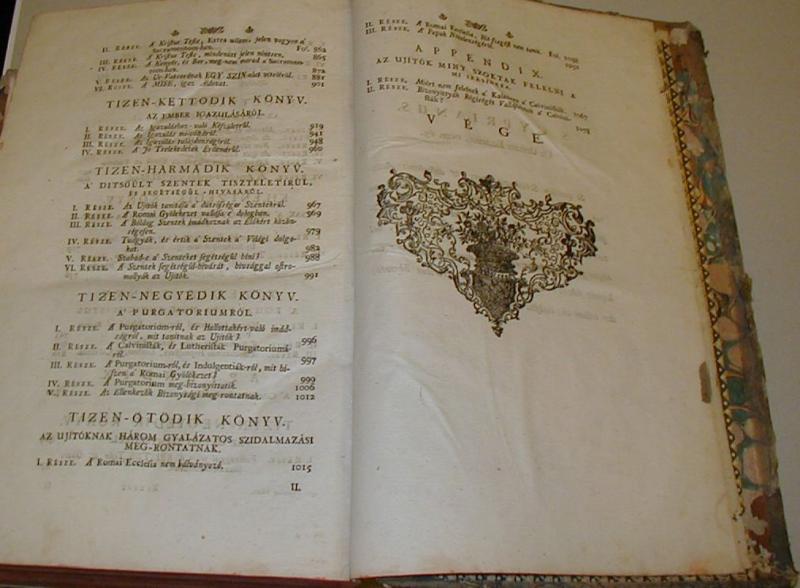 II. RÉSZE. A Kristus Teste, Extra usum, jelen vagyon a'
Sacramentom-ban. Fol. 862
III. RÉSZE. A Kristus Teste, mindenütt jelen nintsen. 865
IV. RÉSZE. A Kenyér, és Bor, meg-nem marad a Sacramen-
tom-ban. 872
V. RÉSZE. Az Ur-Vatsorának EGY SZIN alatt vételéről. 881
VI. RÉSZE. A MISE, igaz Áldozat. 901
TIZEN-KETTŐDIK KÖNYV.
AZ EMBER IGAZULÁSÁRÓL.
I. RÉSZE. Az Igazuláshoz-való Készületről. 919
II. RÉSZE. Az Igazulás mi-vóltáról. 941
III. RÉSZE. Az Igazulás tulajdonságiról. 948
IV. RÉSZE. A Jó Tselekedetek Érdeméről. 960
TIZEN-HARMADIK KÖNYV.
A' DITSŐÜLT SZENTEK TISZTELETIRŰL,
ÉS SEGÍTSÉGÜL-HIVÁSÁRÓL.
I. RÉSZE. Az Ujítók tanítása a' dütsőséges Szentekről. 967
II. RÉSZE. A Romai Gyülekezet vallása e' dologban. 969
III. RÉSZE. A Bóldog Szentek imádkoznak az Élőkért közön-
ségesen. 979
IV. RÉSZE. Tudgyák, és értik a' Szentek a' Világi dolgo-
kat. 982
V. RÉSZE. Szabad-e a' Szenteket segítségül híni? 988
VI. RÉSZE. A Szentek segítségül-hivását, hivsággal ostro-
mollyák az Ujítók. 991
TIZEN-NEGYEDIK KÖNYV.
A' PURGATORIUMRÓL.
I. RÉSZE. A Purgatorium-ról, és Hallottakért-való imád-
ságról, mit tanítnak az Ujítók? 996
II. RÉSZE. A Calvinisták, és Lutheristák Purgatoriumá-
ról.
III. RÉSZE. A Purgatorium-ról, és Indulgentiák-ról, mit hi-
szen a' Romai Gyülekezet? 997
IV. RÉSZE. A Purgatorium meg-bizonyíttatik. 999
1006
V. RÉSZE. Az Ellenkezők Bizonysági meg-rontatnak. 1012
TIZEN-ÖTÖDIK KÖNYV.
AZ UJÍTÓKNAK HÁROM GYALÁZATOS SZIDALMAZÁSI
MEG-RONTATNAK.
I. RÉSZE. A Romai Ecclesia nem bálványozó. 1015
II.
II. RÉSZE. A Romai Ecclesia, Hit-szegést nem tanít. Fol.
III. RÉSZE. A Papok Nőtelenségéről.
APPENDIX.
AZ UJÍTÓK MINT SZOKTAK FELELNI A
MI IRÁSINKRA.
I. RÉSZE. Miért nem felelnek a' Kalauzra a' Calvinisták. 1067
II. RÉSZE. Bizonyittyák Régiségét Vallásoknak a' Calvinis-
ták? 1078
VÉGE